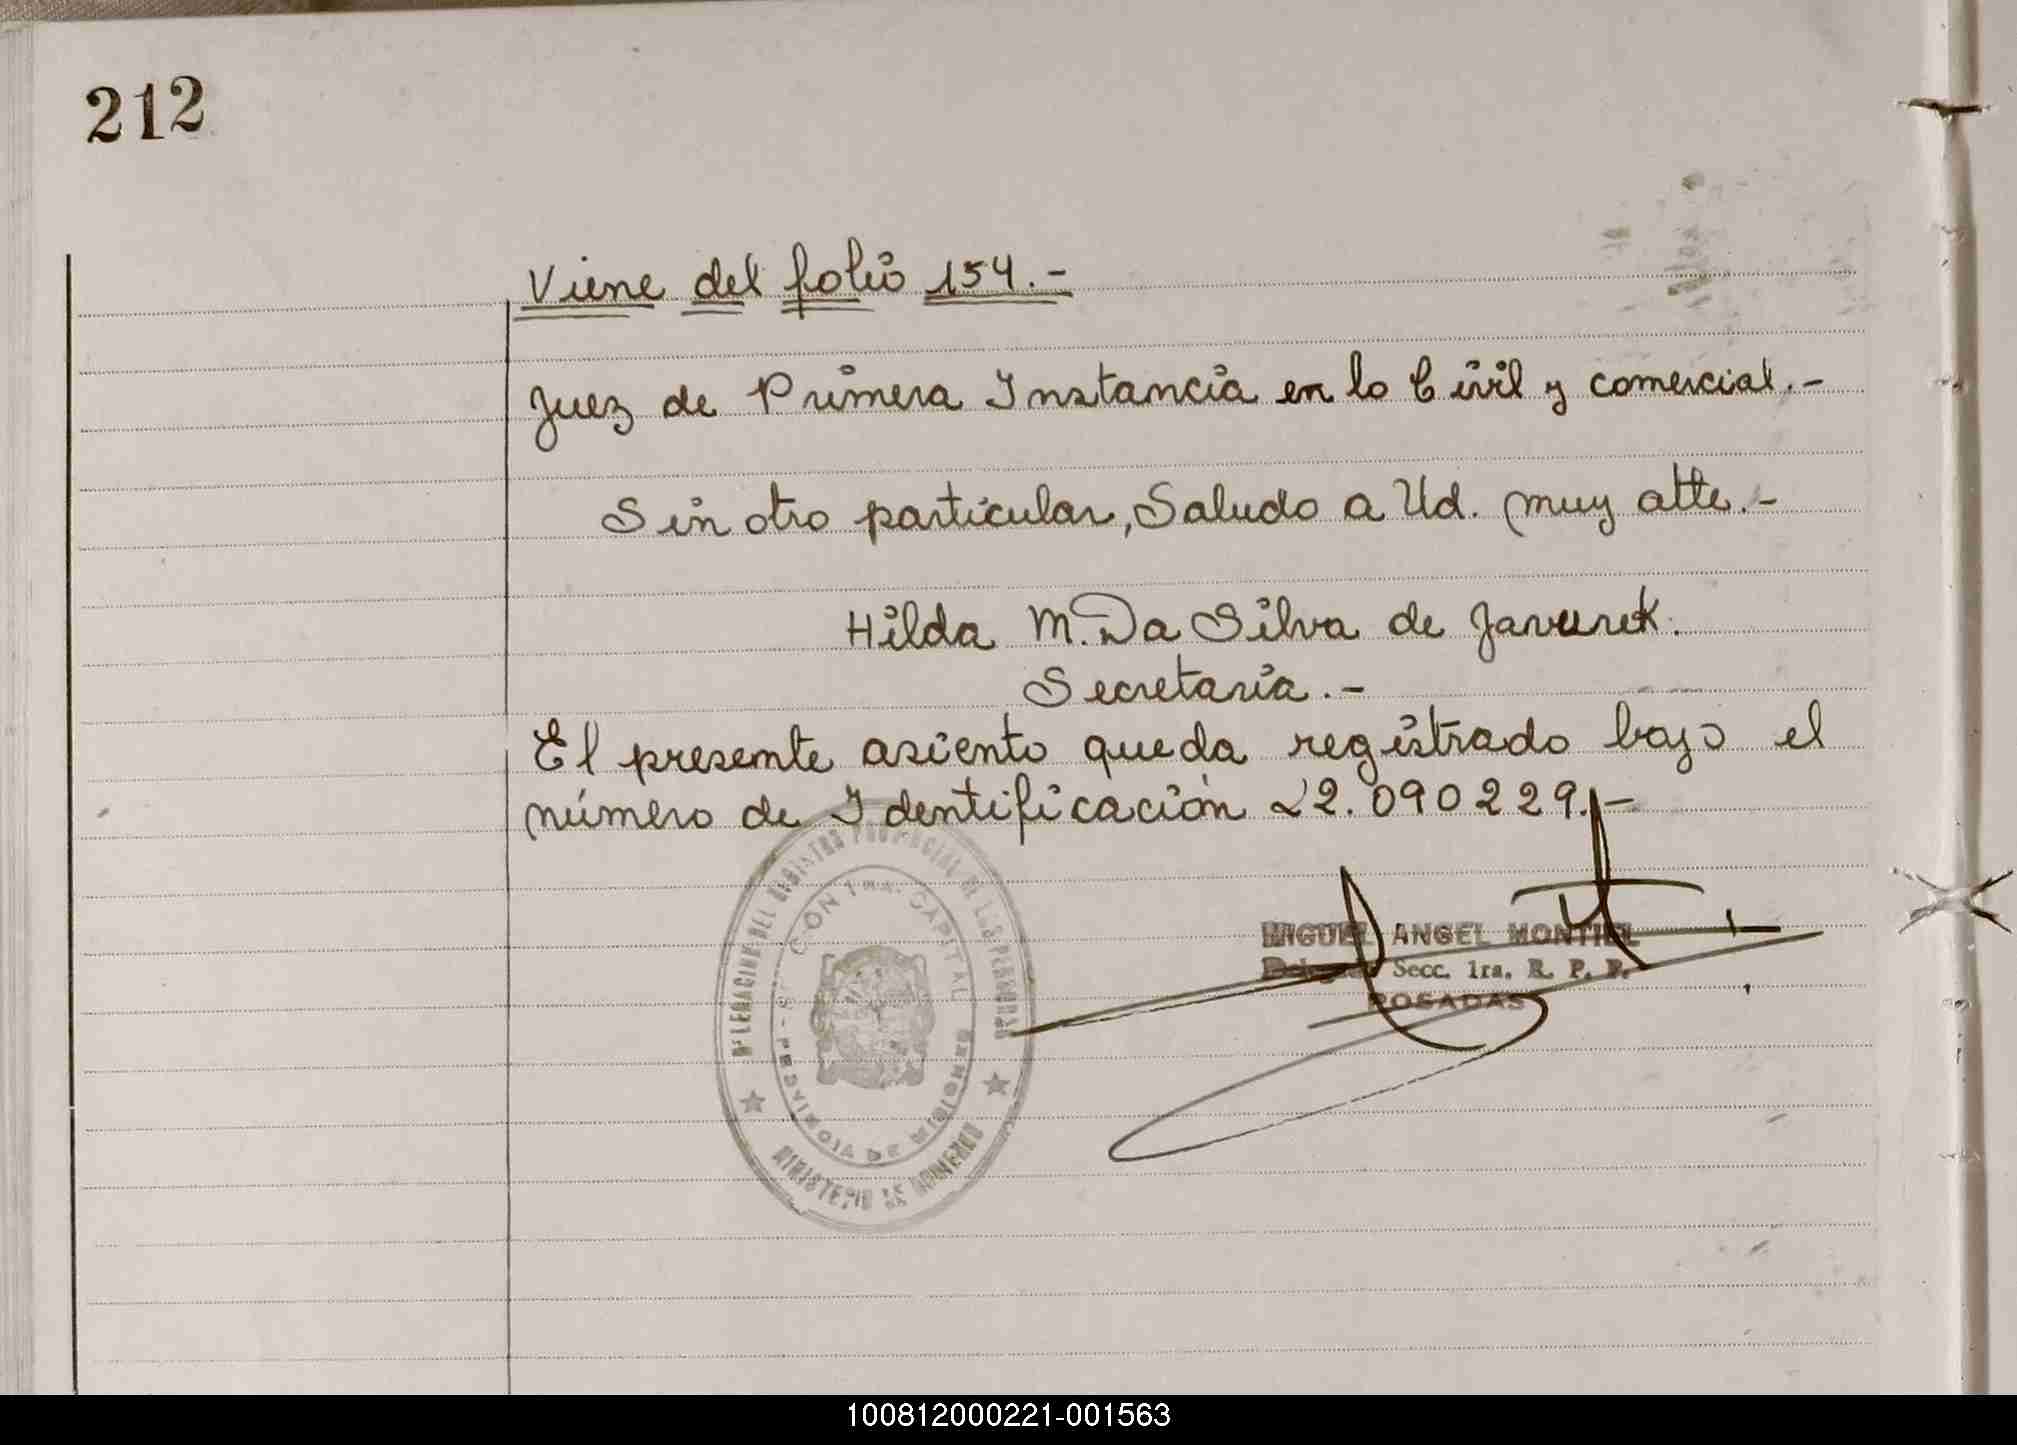 212
Viene del folio 154.-
Juez de Primera Instancia en lo Civil y comercial.-
Sin otro particular, Saludo a Ud. muy atte.-
Hilda M. Da Silva de Javurek.
Secretaria.-
El presente asiento queda registrado bajo el
número de Identificación 22.090229.-
DELEGACION DEL REGISTRO PROVINCIAL DE LAS PERSONAS
CAPITAL
PROVINCIA DE MISIONES
MINISTERIO DE GOBIERNO
MIGUEL ANGEL MONTIEL
Secc. 1ra. R. P. P.
POSADAS
100812000221-001563